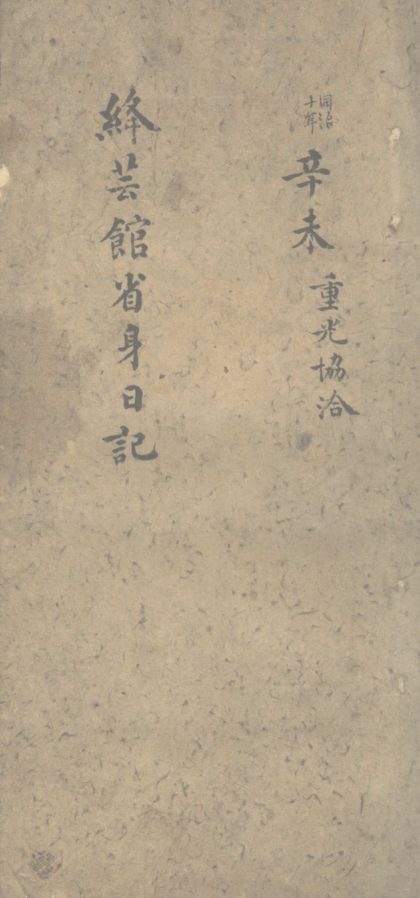 同治
十年
辛未
重光協洽
絳芸館省身日記